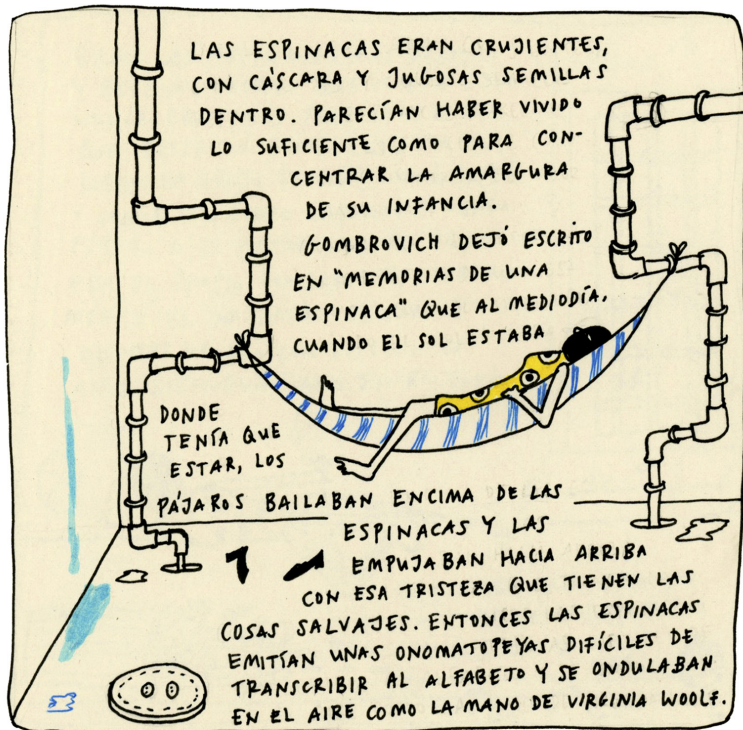 LAS ESPINACAS ERAN CRUJIENTES,
CON CÁSCARA Y JUGOSAS SEMILLAS
DENTRO. PARECÍAN HABER VIVIDO
LO SUFICIENTE COMO PARA CON-
CENTRAR LA AMARGURA
DE SU INFANCIA.
GOMBROVICH DEJÓ ESCRITO
EN "MEMORIAS DE UNA
ESPINACA" QUE AL MEDIODÍA,
CUANDO EL SOL ESTABA
DONDE
TENÍA QUE
ESTAR, LOS
PÁJAROS BAILABAN ENCIMA DE LAS
ESPINACAS Y LAS
EMPUJABAN HACIA ARRIBA
CON ESA TRISTEZA QUE TIENEN LAS
COSAS SALVAJES. ENTONCES LAS ESPINACAS
EMITÍAN UNAS ONOMATOPEYAS DIFÍCILES DE
TRANSCRIBIR AL ALFABETO Y SE ONDULABAN
EN EL AIRE COMO LA MANO DE VIRGINIA WOOLF.